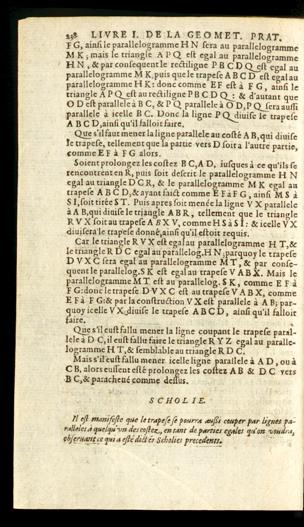 238 LIVRE I. DE LA GEOMET. PRAT.
FG, ainsi le parallelogramme HN sera au parallelogramme
MK; mais le triangle APQ est egal au parallelogramme
HN, & par consequent le rectiligne PBCDQ est egal au
parallelogramme MK, puis que le trapese ABCD est egal au
parallelogramme HK: donc comme EF est à FG, ainsi le
triangle APQ est au rectiligne PBCDQ: & d'autant que
OD est parallele à BC, & PQ parallele à OD, PQ sera aussi
parallele à icelle BC. Donc la ligne PQ diuise le trapese
ABCD, ainsi qu'il falloit faire.
Que s'il faut mener la ligne parallele au costé AB, qui diuise
le trapese, tellement que la partie vers D soit a l'autre partie,
comme EF à FG alors.
Soient prolongez les costez BC, AD, iusques à ce qu'ils se
rencontrent en R, puis soit descrit le parallelogramme HN
egal au triangle DCR, & le parallelogramme MK egal au
trapese ABCD, & ayant faict comme EF à FG, ainsi MS à
SI, soit tirée ST. Puis apres soit menée la ligne VX parallele
à AB, qui diuise le triangle ABR, tellement que le triangle
RVX soit au trapese ABXV, comme HS à SI: & icelle VX
diuisera le trapese donné, ainsi qu'il estoit requis.
Car le triangle RVX est egal au parallelogramme HT, &
le triangle RDC egal au parallelog. HN; parquoy le trapese
DVXC sera egal au parallelogramme MT, & par conse-
quent le parallelog. SK est egal au trapese VABX. Mais le
parallelogramme MT est au parallelog. SK, comme EF à
FG: donc le trapese DVXC est au trapese VABX, comme
EF à FG: & par la construction VX est parallele à AB; par-
quoy icelle VX diuise le trapese ABCD, ainsi qu'il falloit
faire.
Que s'il eust fallu mener la ligne coupant le trapese paral-
lele à DC, il eust fallu faire le triangle RYZ egal au paralle-
logramme HT, & semblable au triangle RDC.
Mais s'il eust fallu mener icelle ligne parallele à AD, ou à
CB, alors eussent esté prolongez les costez AB & DC vers
BC, & paracheué comme dessus.
SCHOLIE.
Il est manifeste que le trapese se pourra aussi couper par lignes pa-
ralleles à quelqu'vn des costez, en tant de parties egales qu'on voudra,
obseruant ce qui a esté dict és Scholies precedents.